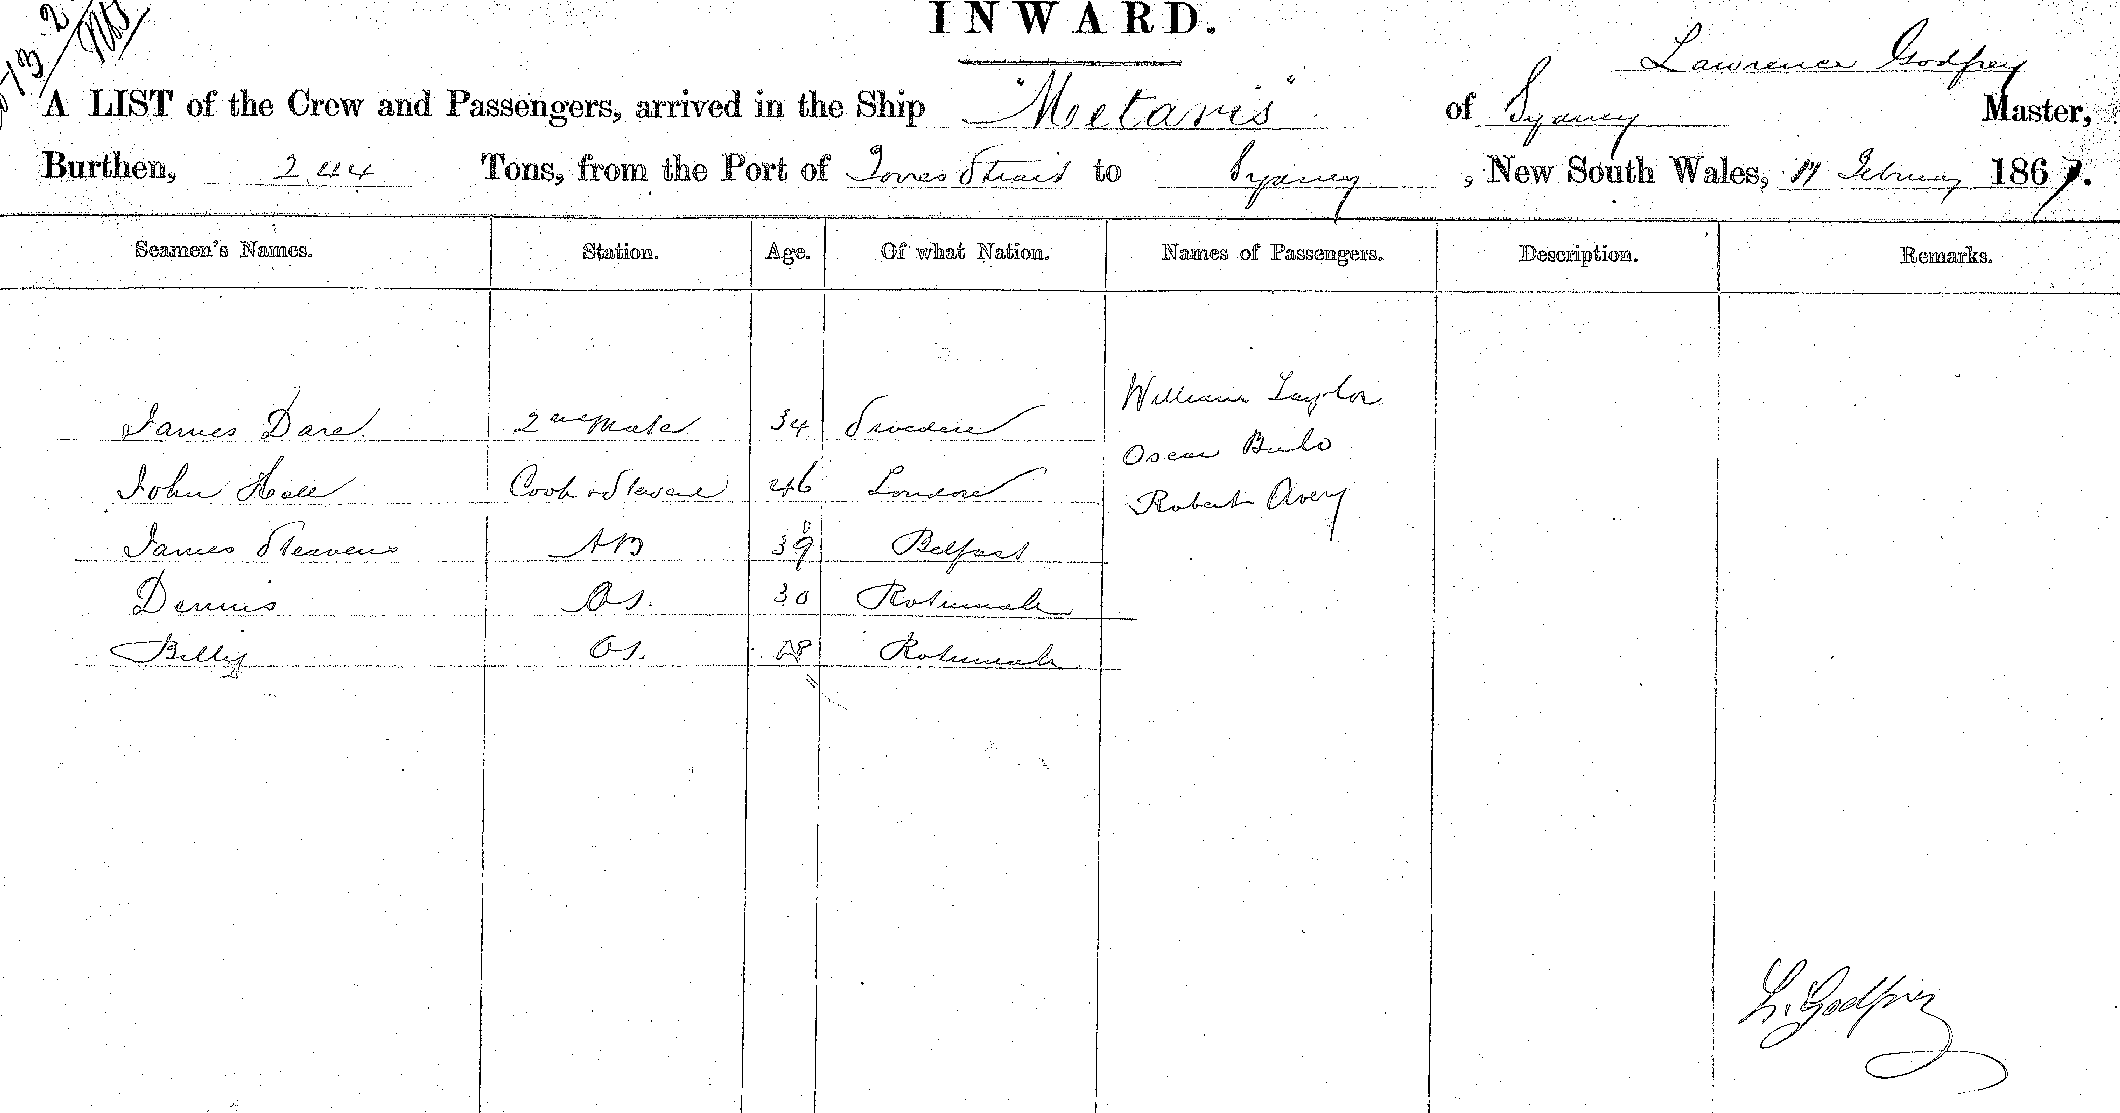 INWARD.
Lawrence Godfrey
A LIST of the Crew and Passengers, arrived in the Ship "Metaris" of Sydney Master,
Burthen, 244 Tons, from the Port of Torres Strait to Sydney, New South Wales, February 1867.
Seamen's Names. Station. Age. Of what Nation. Names of Passengers. Description. Remarks.
William Taylor
James Dare 2nd Mate 34 Sweden
Oscar
John Hall Cook & Steward 46 London
Robert Avery
James Steavens AB 39 Belfast
Dennis OS. 30 Rotumah
Billy OS. Rotumah
L. Godfrey